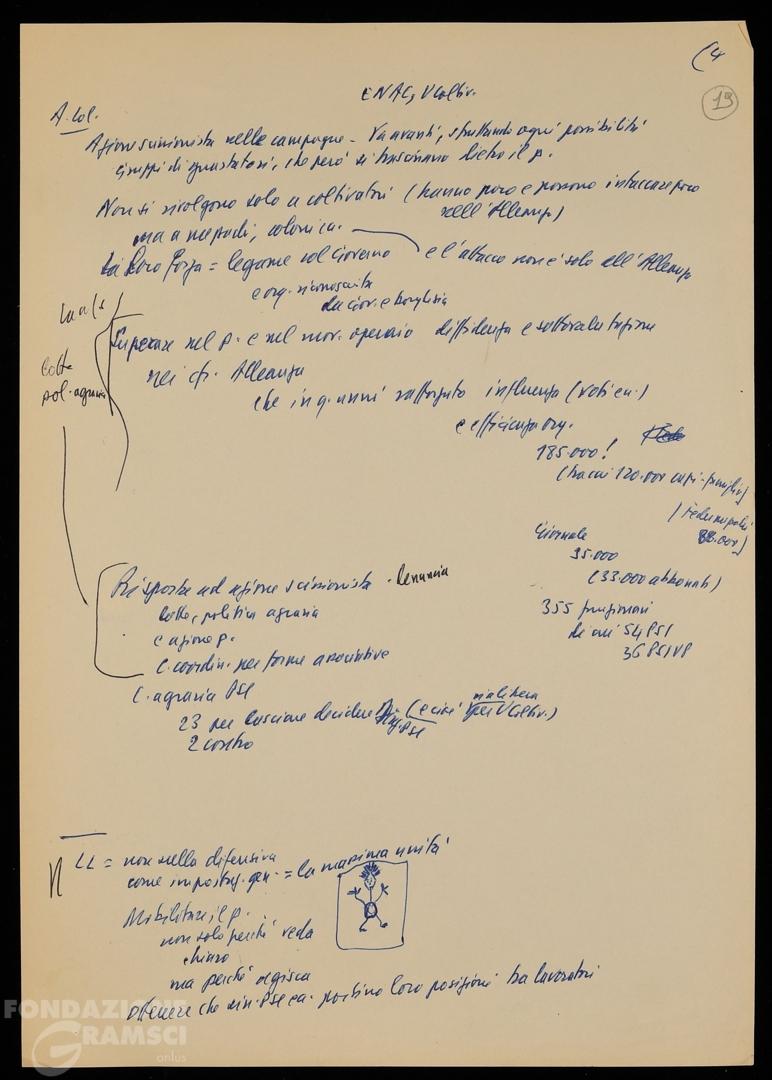 (4
19
ENAC, V Coltiv.
A. Col.
Azione scissionista nelle campagne - Va avanti, sfruttando ogni possibilità
Gruppi di guastatori, che però si trascinano dietro il p.
Non si rivolgono solo a coltivatori (hanno poco e possono intaccare poco
nell'Alleanza)
ma a mezzadri, colonica.
La loro forza = legame col Governo e l'attacco non è solo all'Alleanza
e org. riconosciuta
da Gov. e borghesia
Superare nel p. e nel mov. operaio diffidenza e sottovalutazione
nei cfr. Alleanza
lotte
pol. agraria
che in q. anni rafforzato influenza (voti ecc.)
e efficienza org.
185.000!
(tra cui 120.000 capi-famiglia)
(Federmezzadri
88.000)
Giornale
35.000
(33.000 abbonati)
Risposta ad azione scissionista - denuncia
lotte, politica agraria
e azione p.
C. coordin. per forme associative
355 funzionari
di cui 54 PSI
36 PSIUP
C. agraria PSI
23 per lasciare decidere (e cioè via libera per V Coltiv.)
PSI
2 contro
LL = non sulla difensiva
come impostaz. gen. = la massima unità
Mobilitare il p.
non solo perché veda
chiaro
ma perché agisca
ottenere che sin. PSI ecc. portino loro posizioni tra lavoratori
FONDAZIONE
GRAMSCI
onlus